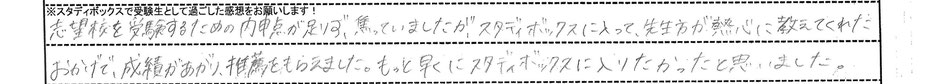 ※スタディボックスで受験生として過ごした感想をお願いします！
志望校を受験するための内申点が足りず、焦っていましたが、スタディボックスに入って、先生方が熱心に教えてくれた
おかげで、成績があがり、推薦をもらえました。もっと早くにスタディボックスに入りたかったと思いました。